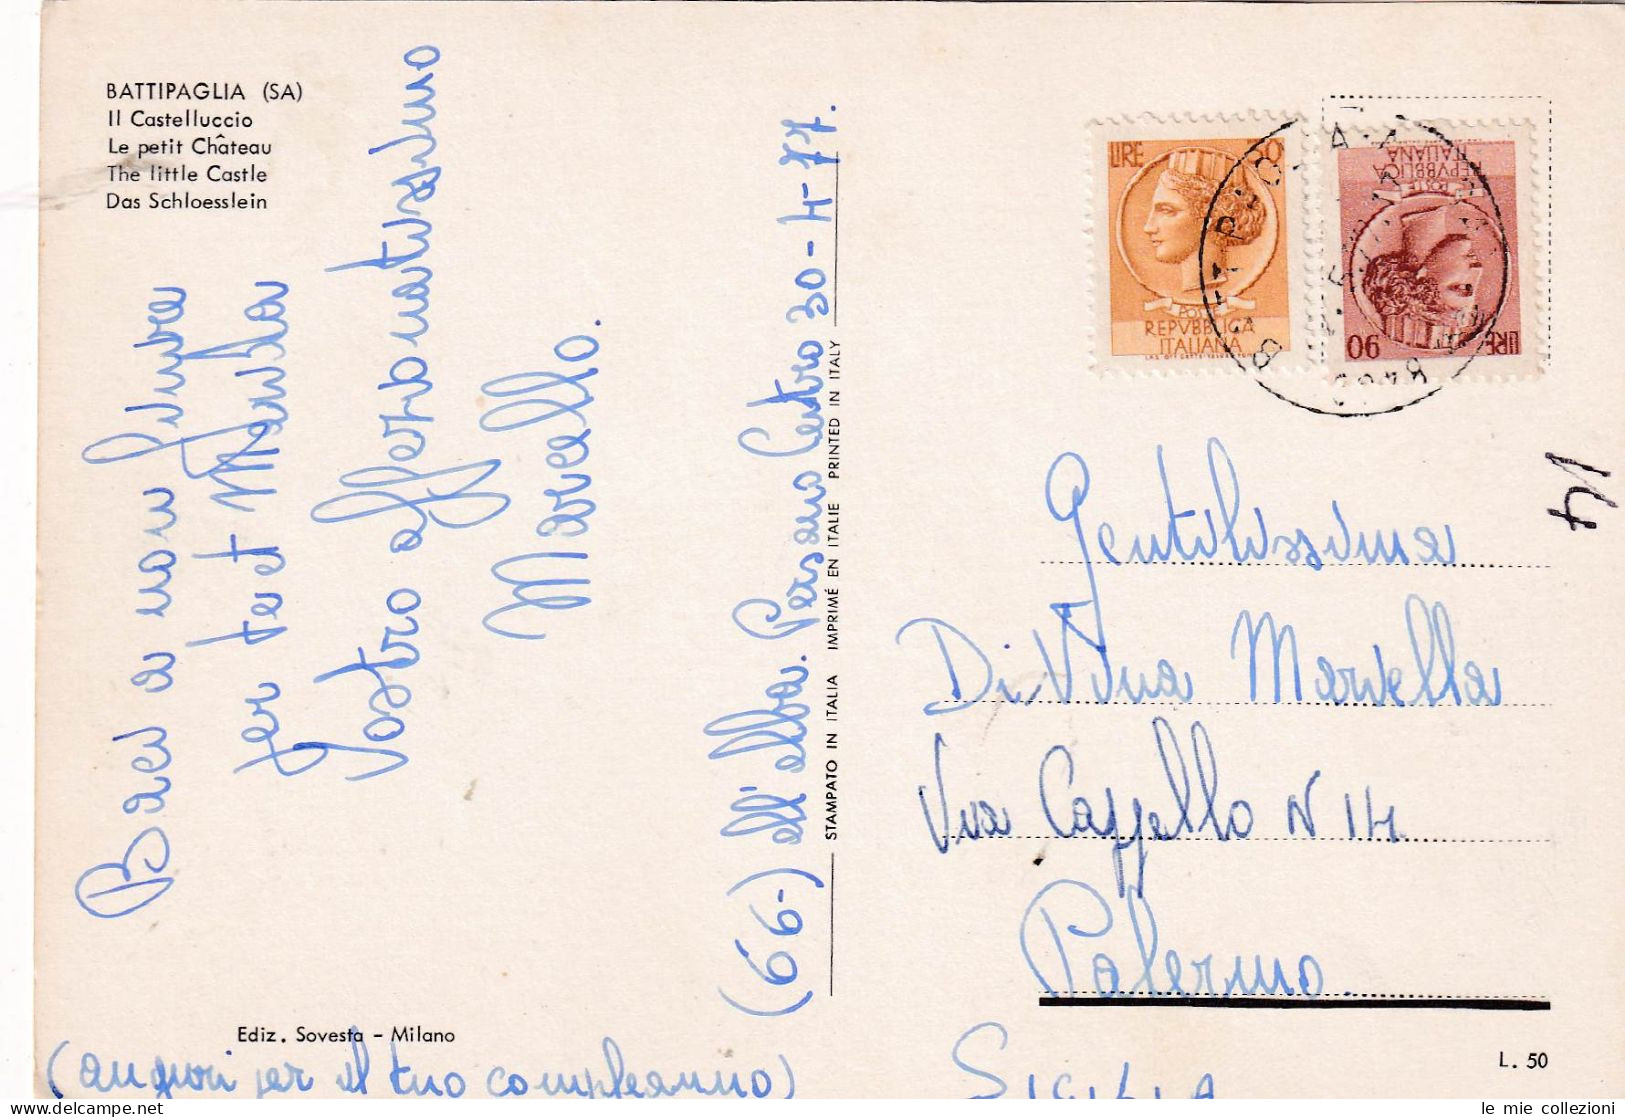 BATTIPAGLIA (SA)
Il Castelluccio
Le petit Château
The little Castle
Das Schloesslein
Baci a non
per te et
Vostro affezionatissimo
Marcello.
(66-) all'alba. Persano Centro 30-4-77.
STAMPATO IN ITALIA IMPRIMÉ EN ITALIE PRINTED IN ITALY
LIRE 50
POSTE
REPVBBLICA
ITALIANA
LIRE 90
POSTE
REPVBBLICA
ITALIANA
1/4
Gentilissima
Di Vina Mariella
Via Cappello N 14
Palermo.
SICILIA
Ediz. Sovesta - Milano
(auguri per il tuo compleanno)
L. 50
le mie collezioni